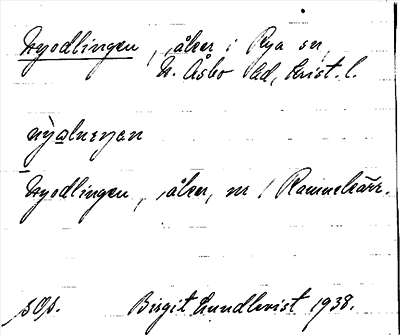 Nyodlingen, åker i Rya sn,
N. Åsbo hd, Krist. l.
Nyodlingen, åker, nr 1 Rammekärr.
sOs. Birgit Lundkvist 1938.